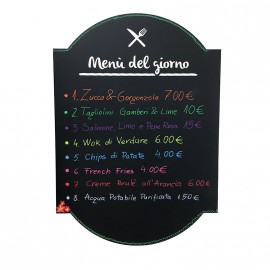 Menù del giorno
1. Zucca & Gorgonzola 7.00 €
2. Tagliolini Gamberi & Lime 10 €
3. Salmone, Lime e Pepe Rosa 15 €
4. Wok di Verdure 6.00 €
5. Chips di Patate 4.00 €
6. French Fries 4.00 €
7. Creme Brulè all'Arancia 6.00 €
8. Acqua Potabile Purificata 1.50 €